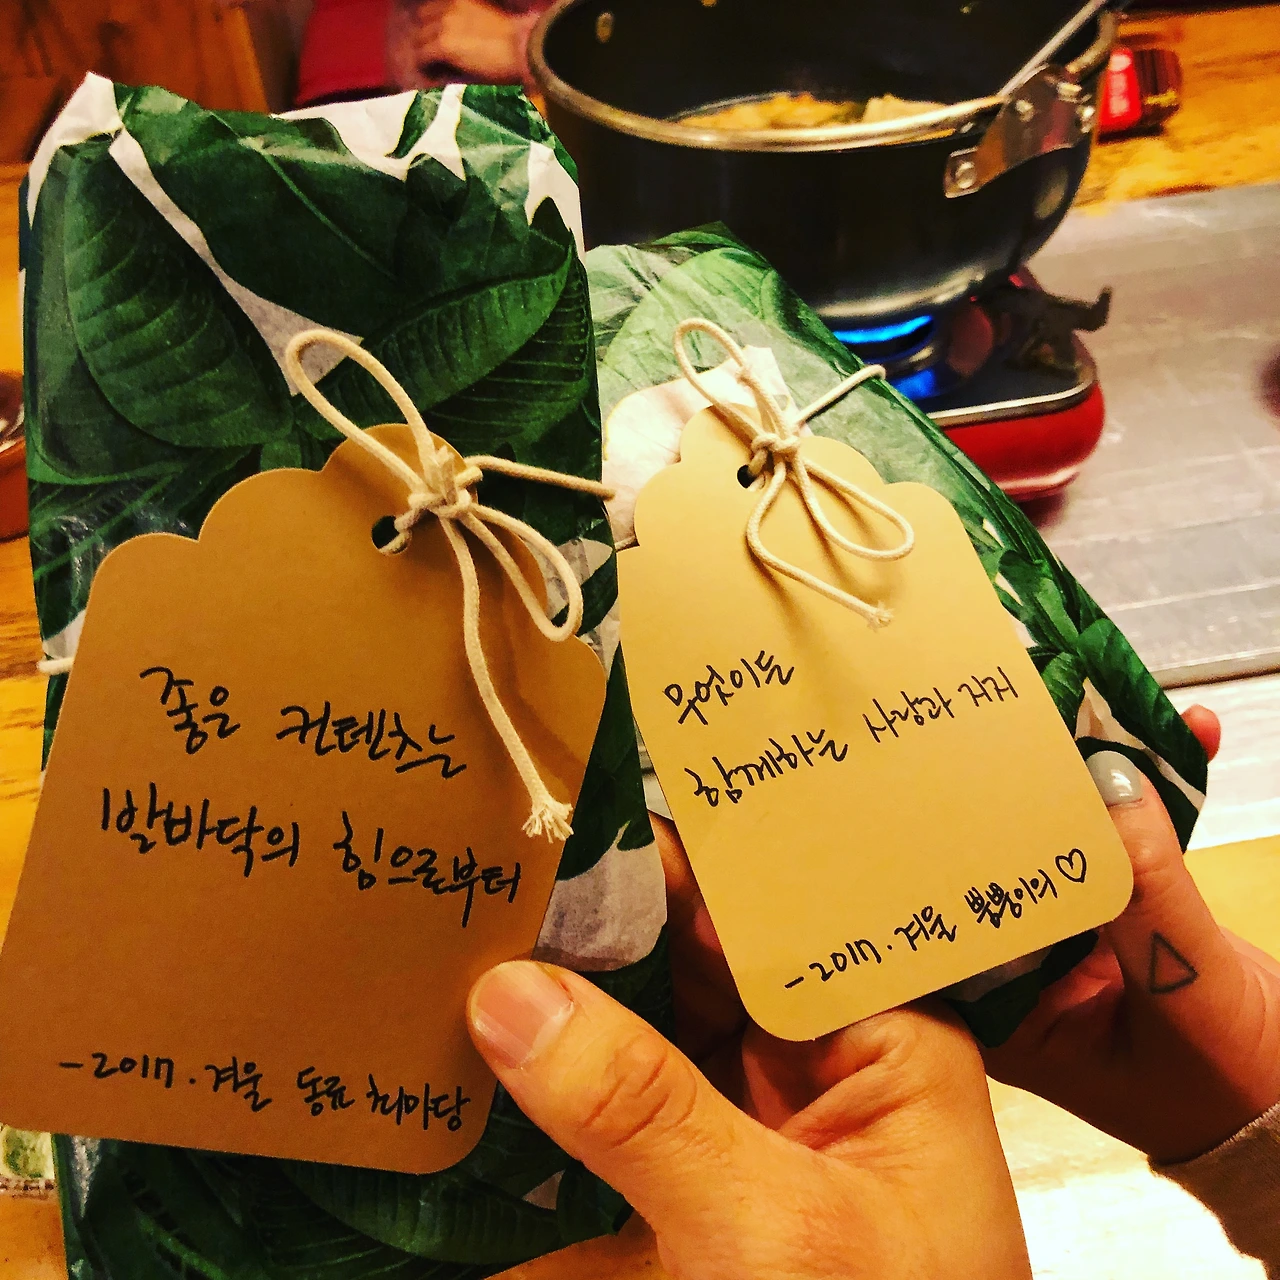 좋은 컨텐츠는
발바닥의 힘으로부터
-2017. 겨울 동료 최마당
무엇이든
함께하는 사랑과 지지
-2017. 겨울 뿜뿡이의 ♡